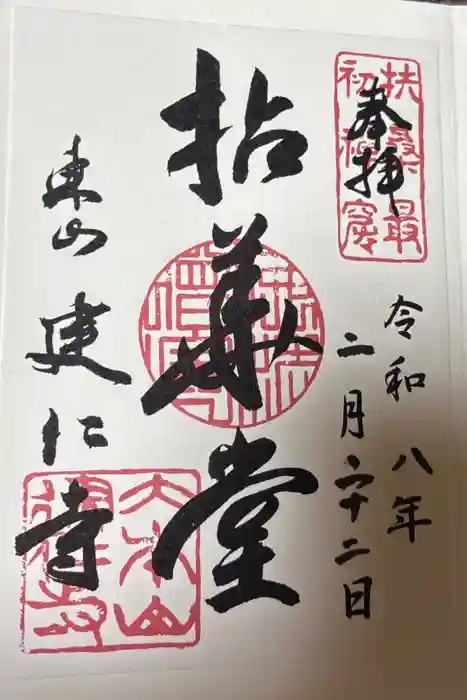 扶桑最
初禅窟
奉拝
令和八年
二月二十二日
拈華堂
東山 建仁寺
大本山
建仁寺